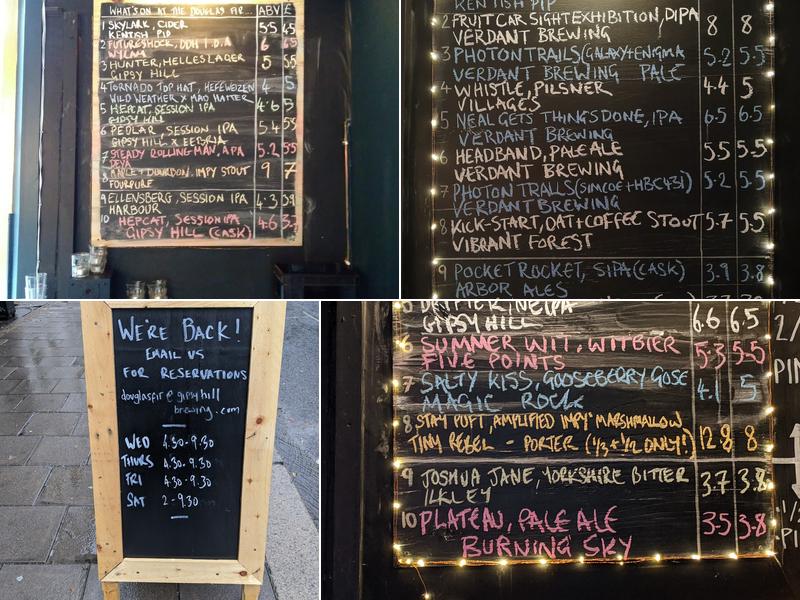 WHAT'S ON AT THE DOUGLAS FIR... ABV £
1 SKYLARK, CIDER 5.5 4.5
KENTISH PIP
2 FUTURESHOCK, DDH I.D.A 6
WYLAM
3 HUNTER, HELLES LAGER 5 5.5
GIPSY HILL
4 TORNADO TOP HAT, HEFEWEIZEN 4 5
WILD WEATHER X MAD HATTER
5 HEPCAT, SESSION IPA 4.6 5
GIPSY HILL
6 PEDLAR, SESSION IPA 5.4 5.5
GIPSY HILL X
7 STEADY ROLLING MAN, APA 5.2 5.5
DEYA
8 MAPLE + BOURBON, IMPY STOUT 9 7
FOURPURE
9 ELLENSBERG, SESSION IPA 4.3 3.9
HARBOUR
10 HEPCAT, SESSION IPA 4.6 3.7
GIPSY HILL (CASK)
KENTISH PIP
2 FRUIT CAR SIGHT EXHIBITION, DIPA 8 8
VERDANT BREWING
3 PHOTON TRAILS (GALAXY+ENIGMA 5.2 5.5
VERDANT BREWING PALE
4 WHISTLE, PILSNER 4.4 5
VILLAGES
5 NEAL GETS THINGS DONE, IPA 6.5 6.5
VERDANT BREWING
6 HEADBAND, PALE ALE 5.5 5.5
VERDANT BREWING
7 PHOTON TRAILS (SIMCOE+HBC431) 5.2 5.5
VERDANT BREWING
8 KICK-START, OAT+COFFEE STOUT 5.7 5.5
VIBRANT FOREST
9 POCKET ROCKET, SIPA (CASK) 3.9 3.8
ARBOR ALES
WE'RE BACK!
EMAIL US
FOR RESERVATIONS
douglasfir@gipsyhill
brewing.com
WED 4.30-9.30
THURS 4.30-9.30
FRI 4.30-9.30
SAT 2-9.30
DRIFTER, NEIPA 6.6 6.5
GIPSY HILL
6 SUMMER WIT, WITBIER 5.3 5.5
FIVE POINTS
7 SALTY KISS, GOOSEBERRY GOSE 4.1 5
MAGIC ROCK
8 STAY PUFT, AMPLIFIED IMPY MARSHMALLOW 12.8 8
TINY REBEL - PORTER (1/3 + 1/2 ONLY!)
9 JOSHUA JANE, YORKSHIRE BITTER 3.7 3.8
ILKLEY
10 PLATEAU, PALE ALE 3.5 3.8
BURNING SKY